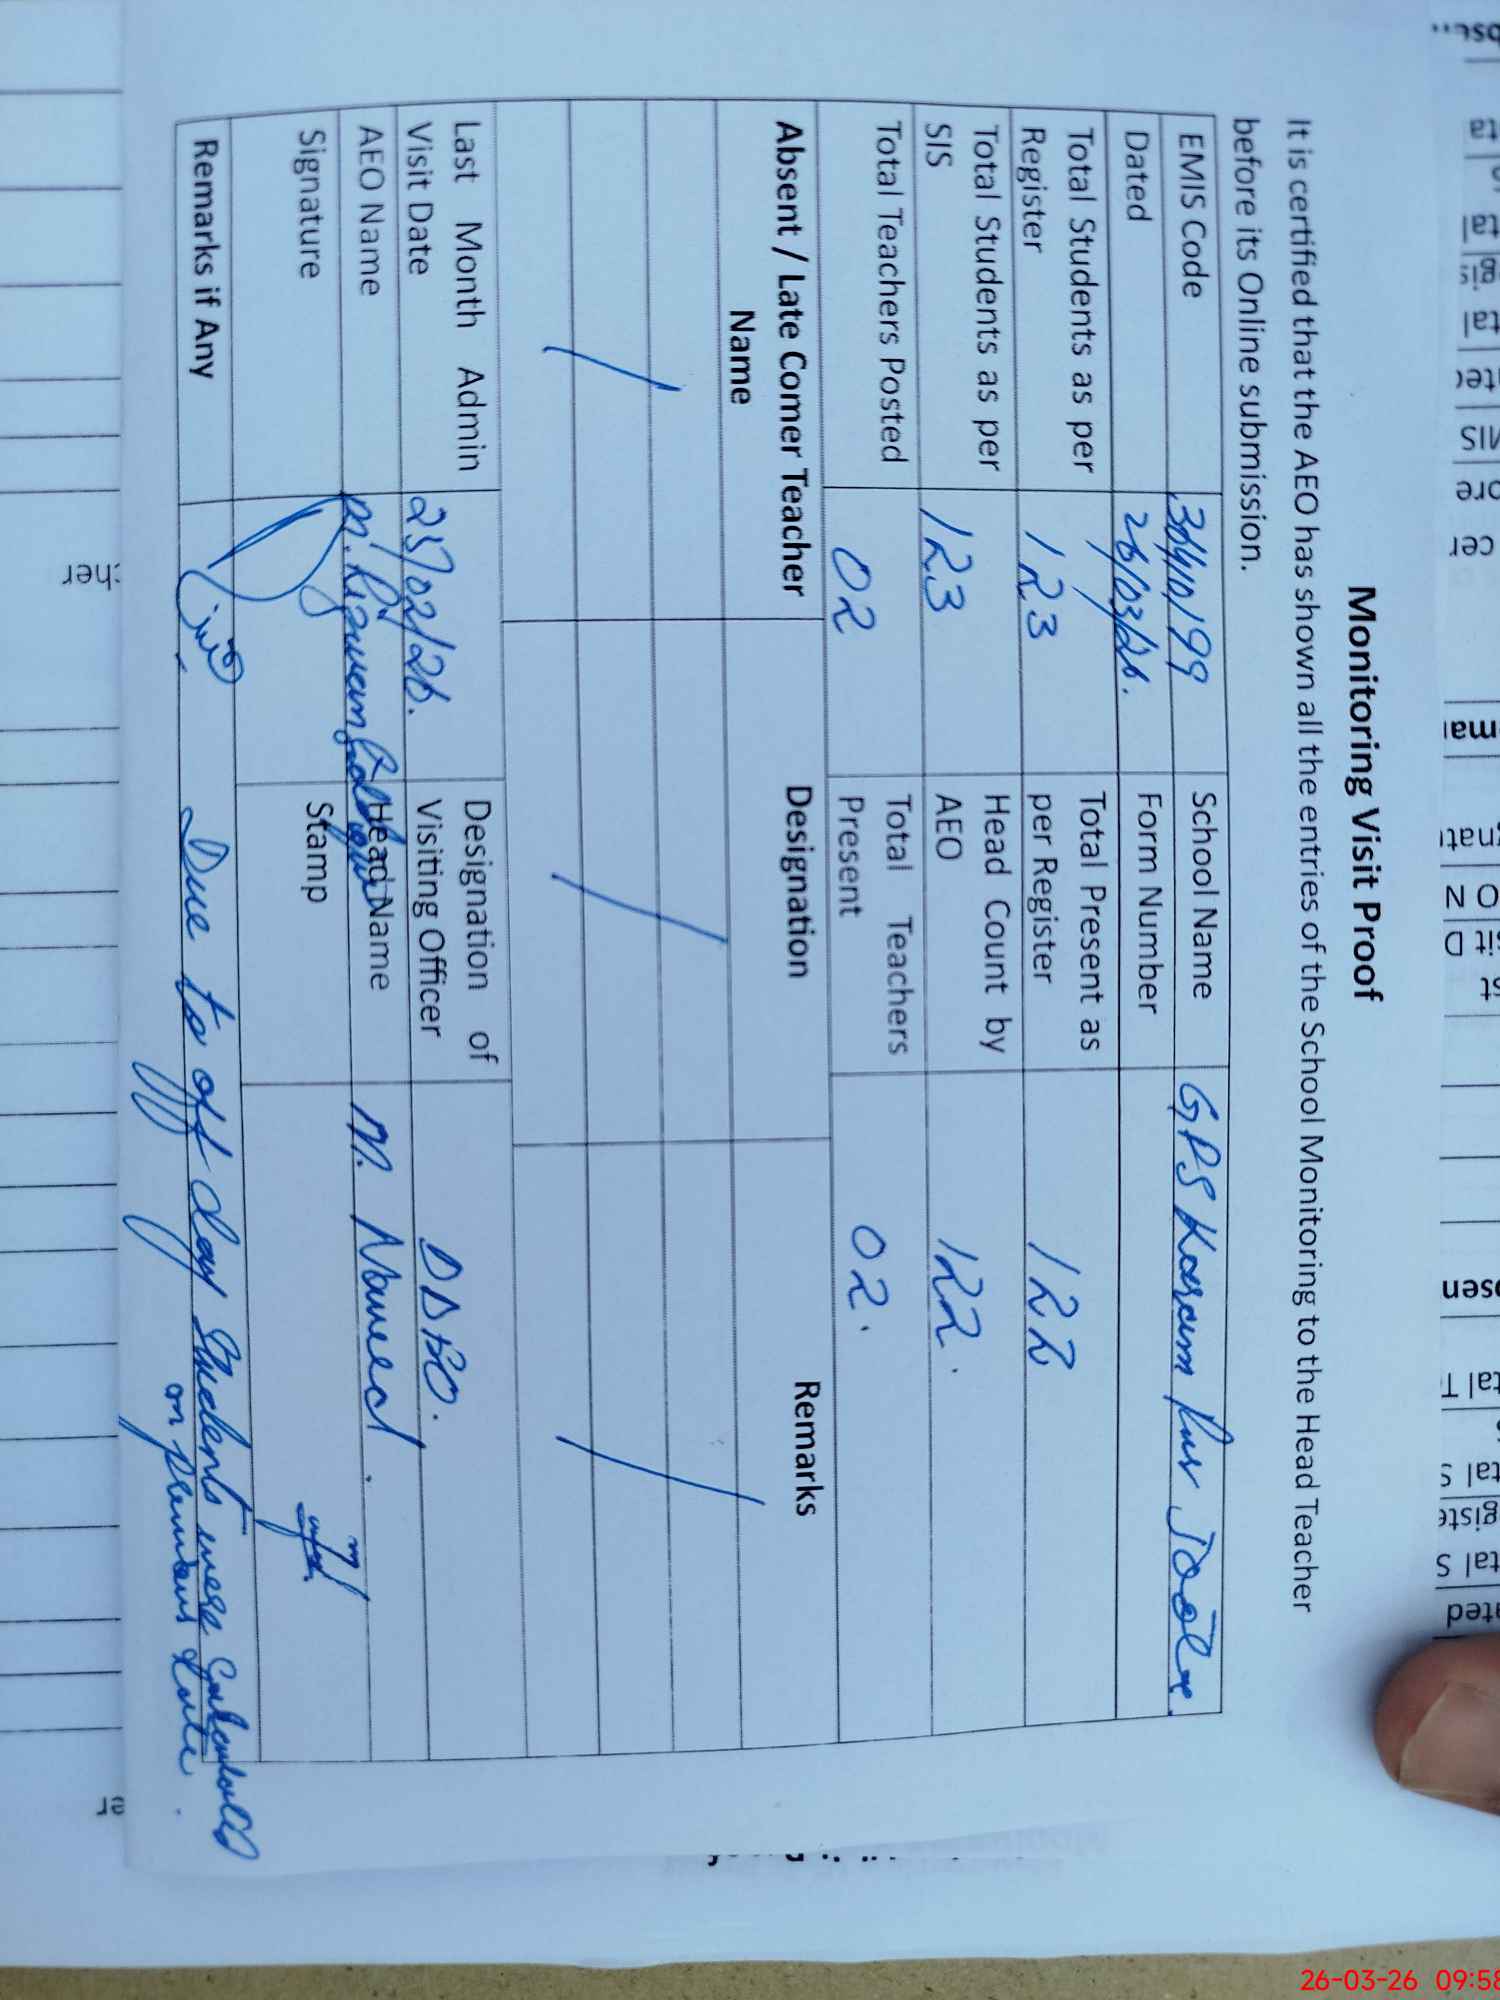 Monitoring Visit Proof
It is certified that the AEO has shown all the entries of the School Monitoring to the Head Teacher
before its Online submission.
EMIS Code 36440199 School Name GPS Karam Pur
Dated 26/03/26. Form Number
Total Students as per Register 123 Total Present as per Register 122
Total Students as per SIS 123 Head Count by AEO 122.
Total Teachers Posted 02 Total Teachers Present 02.
Absent / Late Comer Teacher Name Designation Remarks
/ / /
Last Month Admin Visit Date 25/02/26. Designation of Visiting Officer
AEO Name M. Rizwan Head Name M. Naveed.
Signature Stamp
Remarks if Any Due to off day Students were Calculated
on previous date.
26-03-26 09:58